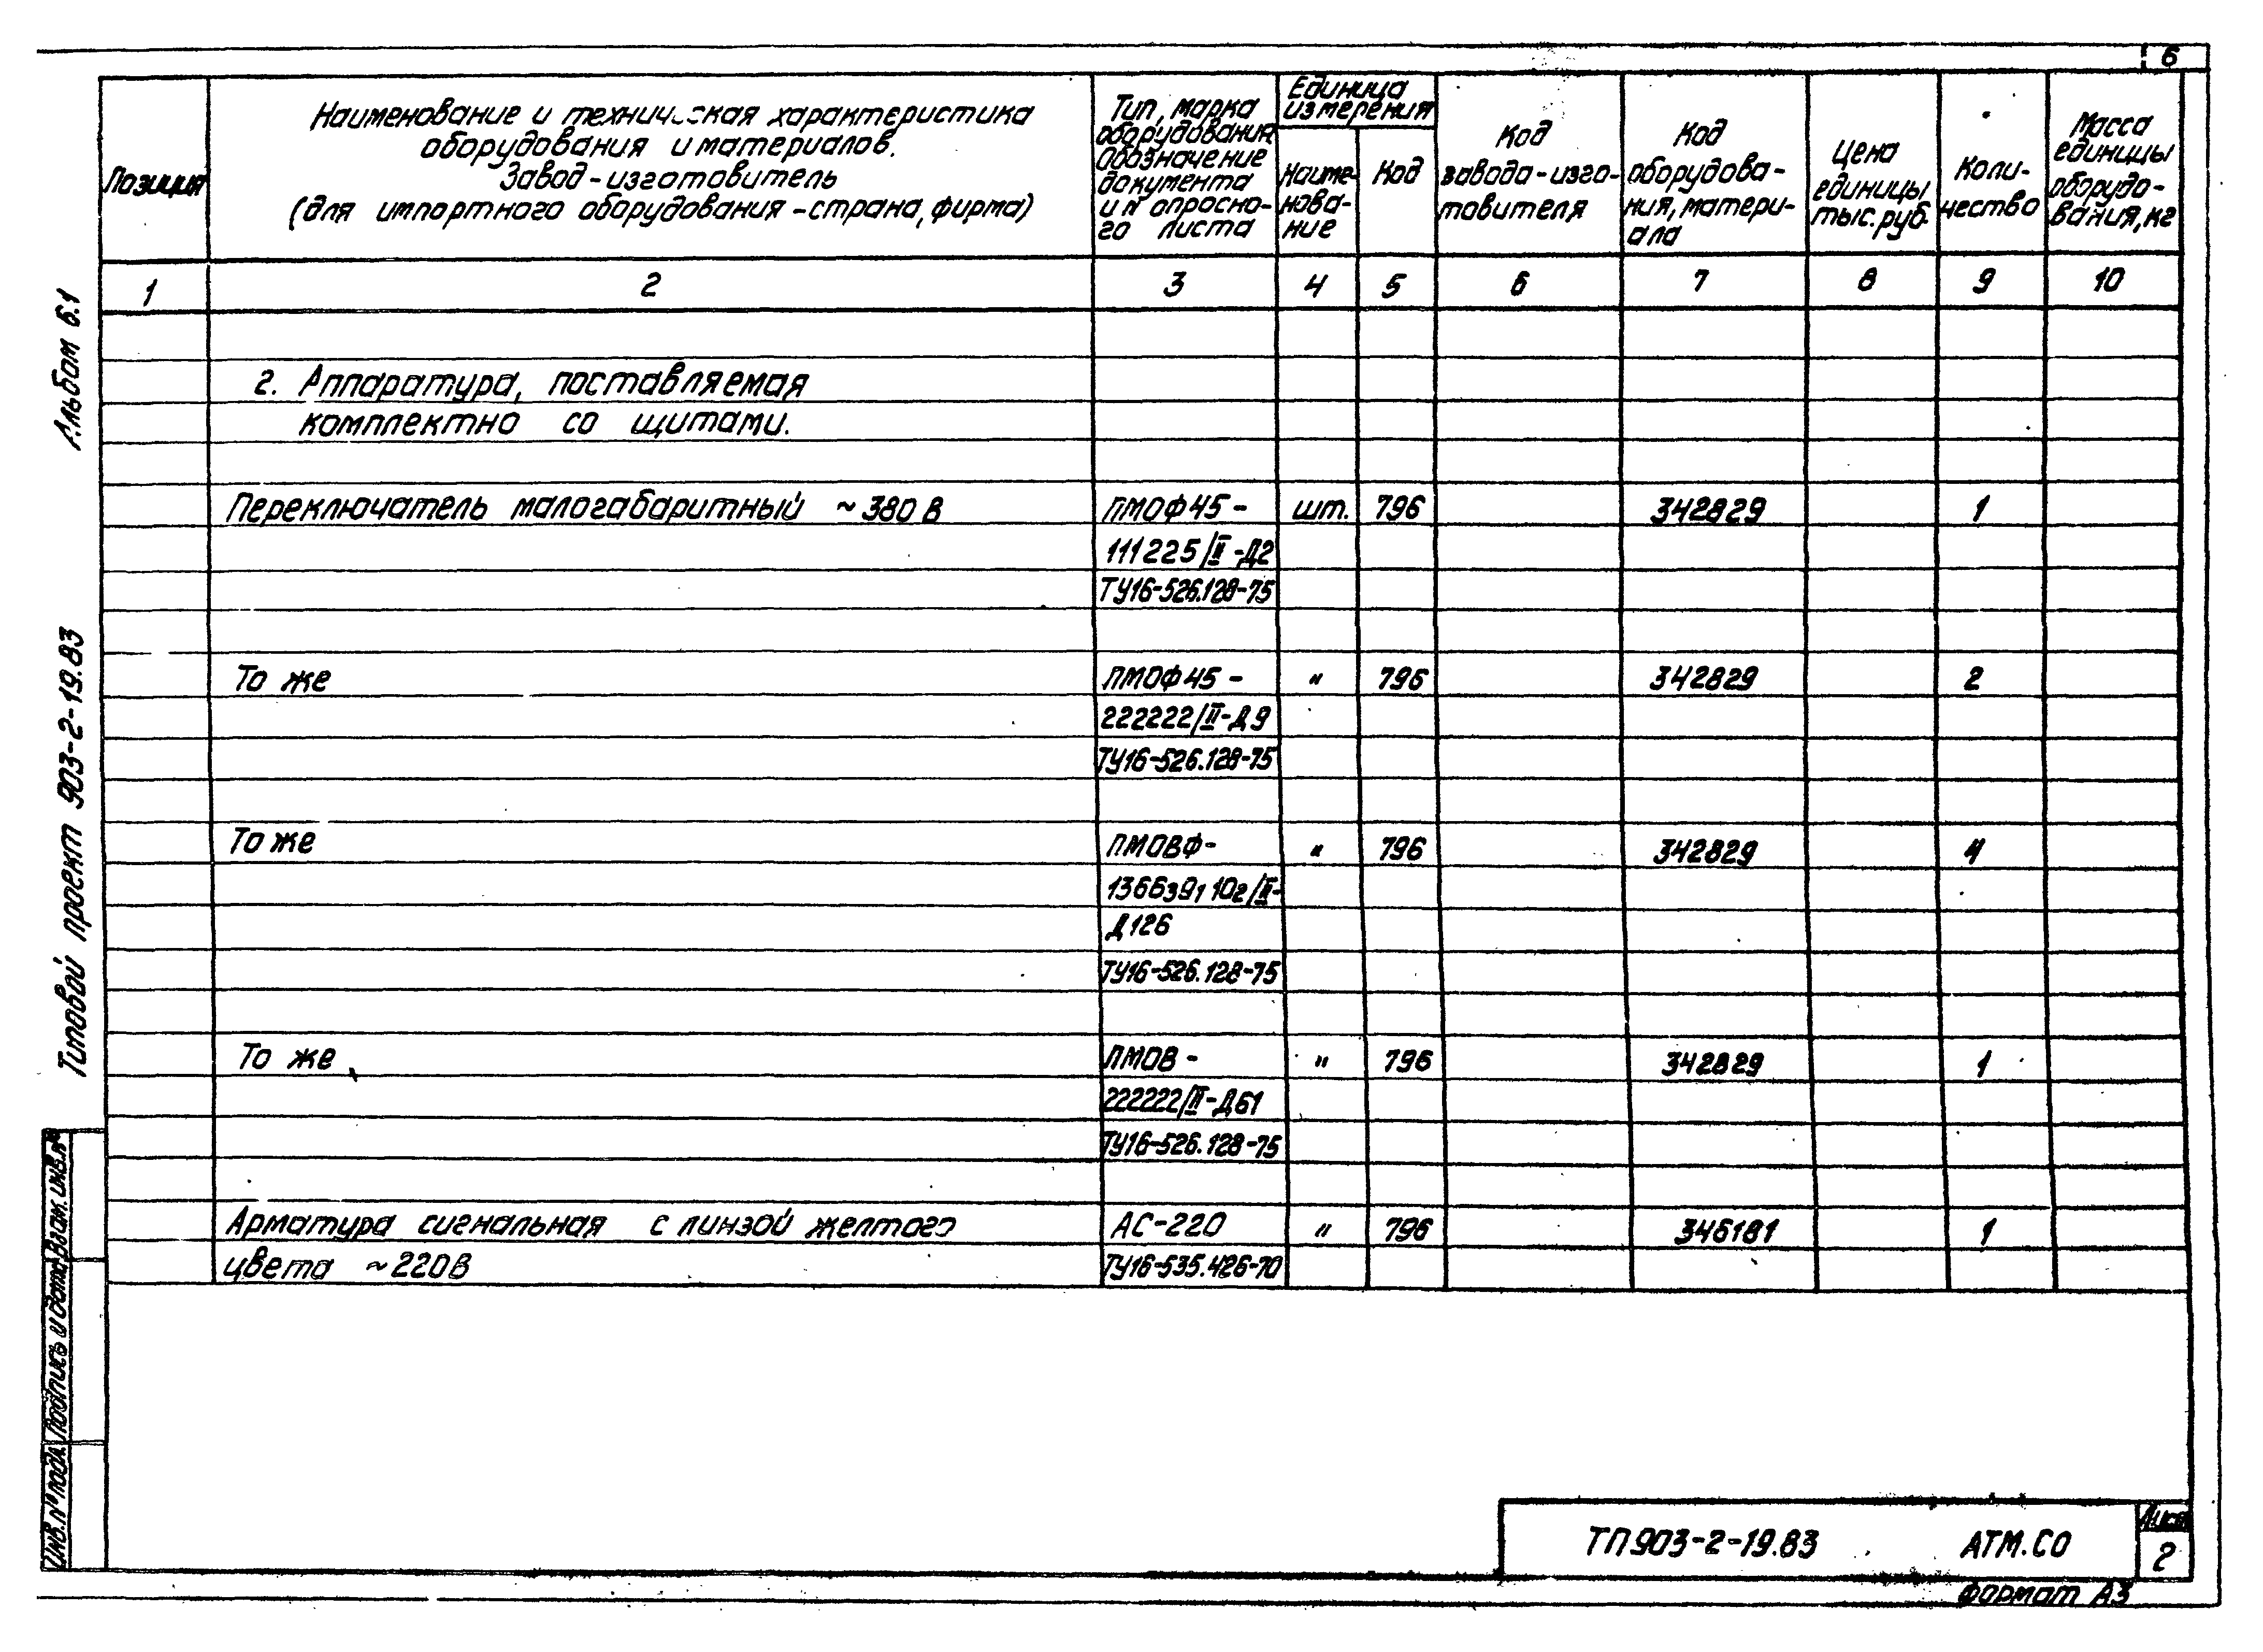 6
Позиция
Наименование и техническая характеристика
оборудования и материалов.
Завод-изготовитель
(для импортного оборудования - страна, фирма)
Тип, марка
оборудования.
Обозначение
документа
и № опросно-
го листа
Единица
измерения
Наиме-
нова-
ние
Код
Код
завода-изго-
товителя
Код
оборудова-
ния, матери-
ала
Цена
единицы,
тыс.руб.
Коли-
чество
Масса
единицы
оборудо-
вания, кг
1 2 3 4 5 6 7 8 9 10
2. Аппаратура, поставляемая
комплектно со щитами.
Переключатель малогабаритный ~380 В ПМОФ45- шт. 796 342829 1
111225/II-Д2
ТУ16-526.128-75
То же ПМОФ45- " 796 342829 2
222222/II-Д9
ТУ16-526.128-75
То же ПМОВФ- " 796 342829 4
1366391102/II-
Д126
ТУ16-526.128-75
То же ПМОВ- " 796 342829 1
222222/III-Д61
ТУ16-526.128-75
Арматура сигнальная с линзой желтого АС-220 " 796 346181 1
цвета ~220В ТУ16-535.426-70
Альбом 6.1
Типовой проект 903-2-19.83
Взам. инв.№
Подпись и дата
Инв.№ подл.
ТП903-2-19.83 АТМ.СО
Лист
2
Формат А3